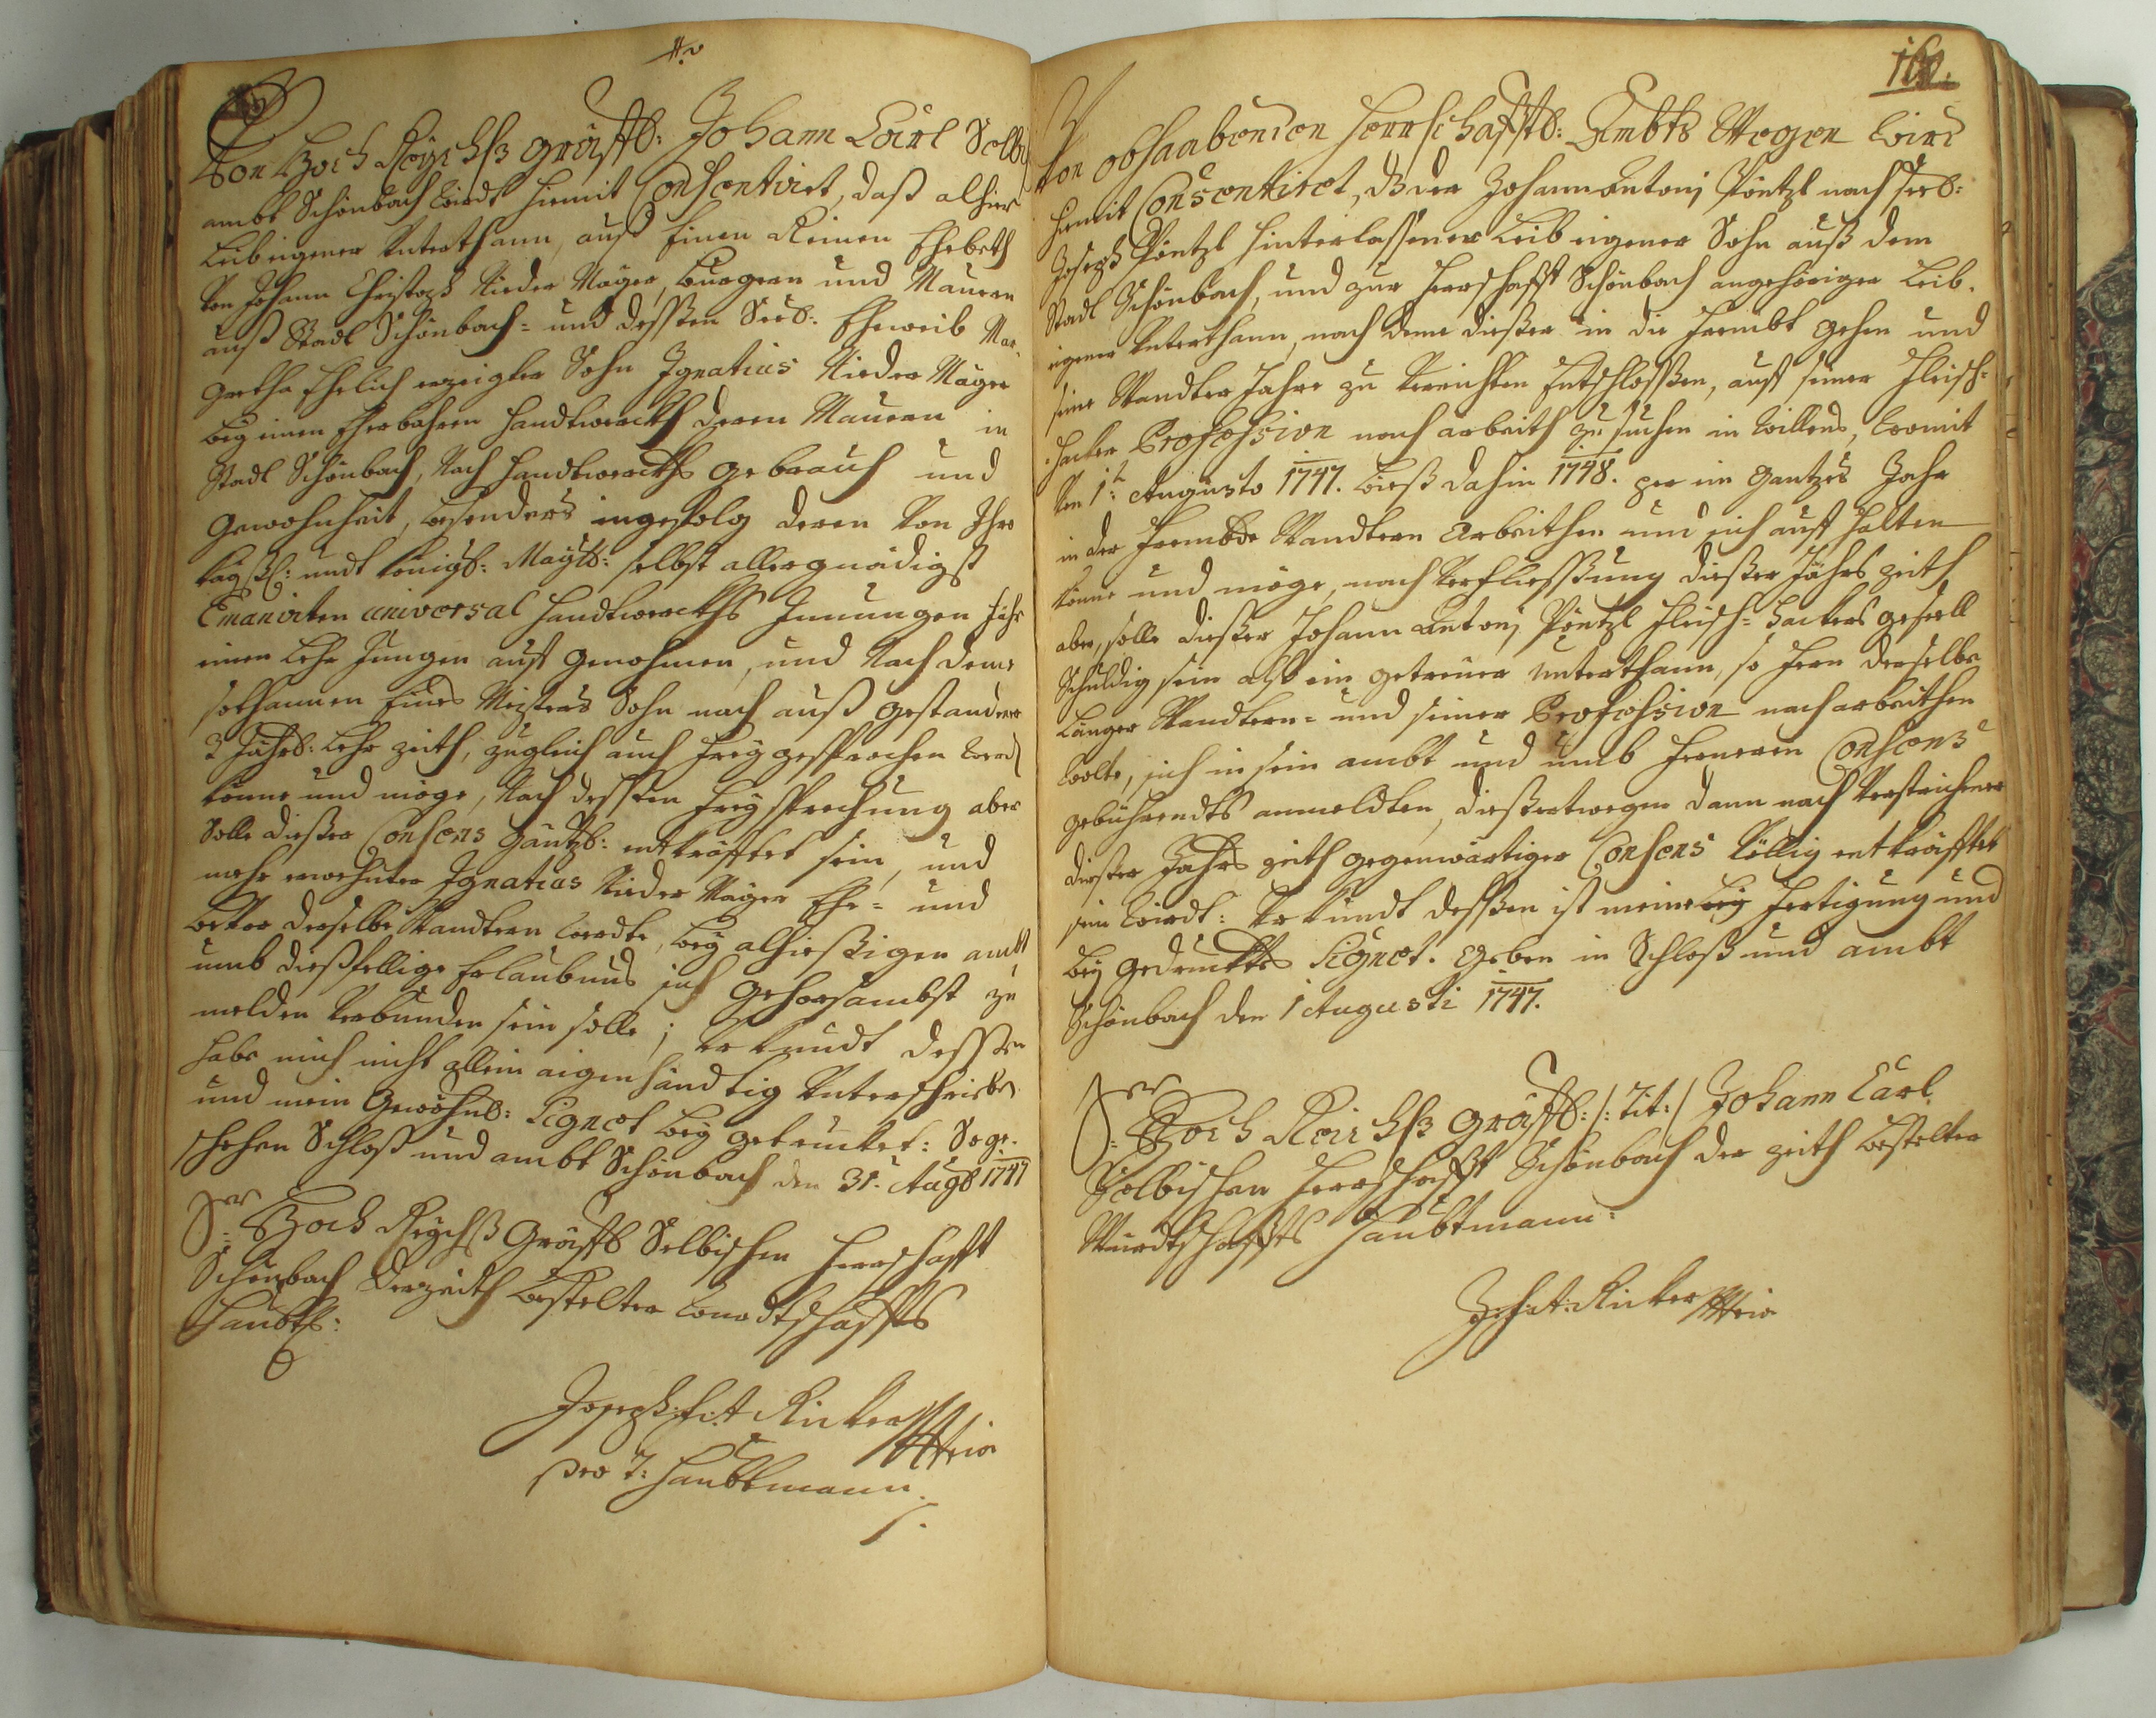 Von Hoch Reychß gräffl: Johann Carl Solbi
ambt Schönbach wirdt hiemit Consentirt, daß alhier
Leib eigener Unterthann, auß Einen Reinen Ehebeth
Von Johann Christoph Nieder Mayer, burgern und Maurern
auß Stadl Schönbach= und dessen Seel: Eheweib Mar-
gretha Ehelich erzeigter Sohn Ignatius Nieder Mayer
bey einen Ehrbahren Handtwerckh deren Maurern in
Stadl Schönbach, Nach Handtwerckhs gebrauch und
gewohnheit, besonders ingefolg deren Von Ihro
kayßl: undt königl: Mayst: selbst allergnädigst
Emanirten universal Handtwerckhs Innungen führ
einen Lehr Jungen auf genohmen, und Nach deme
sothannen Eines Meisters Sohn nach auß gestandener
2 Jahrs: Lehr zeith, zugleich auch freygesprochen werd
könne und möge, Nach dessen freysprechung aber
Solle dießer Consens gäntzl: entkräfftet sein, und
mehr erwehnter Ignatius Nieder Mayer Ehe= und
bevor derselbe Wandtern werdte, bey alhießigen ambt
umb dießfellige Erlaubnus sich gehorsambst zu
melden Verbunden sein solle; Urkundt dessen
habe mich nicht allein aigenhändtig Unterschrieben
und mein Gewöhnl: Signet bey getrucket: Sege-
schehen Schloß und ambt Schönbach den 31: Augl 1747
Sr: Hoch Reychß Gräffl Selbischen Herrschafft
Schönbach derzeith bestelter Würdtschaffts
Haubtl:
Joseph: fit Ricker Mria
pro T: Haubtmann
160.
Von obhaabenden Herrschafftl: Ambts Wegen Wird
hiemit Consentiret, dß der Johann Antoni Pöntzl nach Seel:
Joseph Pöntzl hinterlassener Leib eigener Sohn auß dem
Stadl Schönbach, und zur Herrschafft Schönbach angehöriger Leib-
eigener Unterthann, nach deme dießer in die frembt gehen und
seine Wandter Jahre zu Verrichten Entschlossen, auf seiner Fleisch-
hacker Profession nach arbeith zu suchen in Willens, Womit
Von 1t: Augusto 1747. bieß dahin 1748. per ein gantzes Jahr
in der frembde Wandtern Arbeithen und sich auf halten
könne und möge, nach Verfliessung dießer Jahrs zeith
aber, solle dießer Johann Antoni Pöntzl Fleisch= hackers gesell
Schuldig sein alß ein getreuer Unterthann, so fern derselbe
Länger Wandtern= und seiner Profession nach arbeithen
Wolte, sich in sein ambt und umb ferneren Consens
gebührendts anmeldten, dießentwegen dann nach Verstrichener
dießer Jahrs zeith gegenwärtiger Consens Völlig entkräfftet
sein Wirdt: Urkundt dessen ist meine bey fertigung und
bey gedrucktes Signet. geben in Schloß und ambt
Schönbach den 1 Augusti 1747.
Sr: Hoch Reichß Gräffl: /: Tit: / Johann Carl
Solbischen Herrschafft Schönbach der zeith bestelter
Würdtschaffts Haubtmann:
Ricker Mria